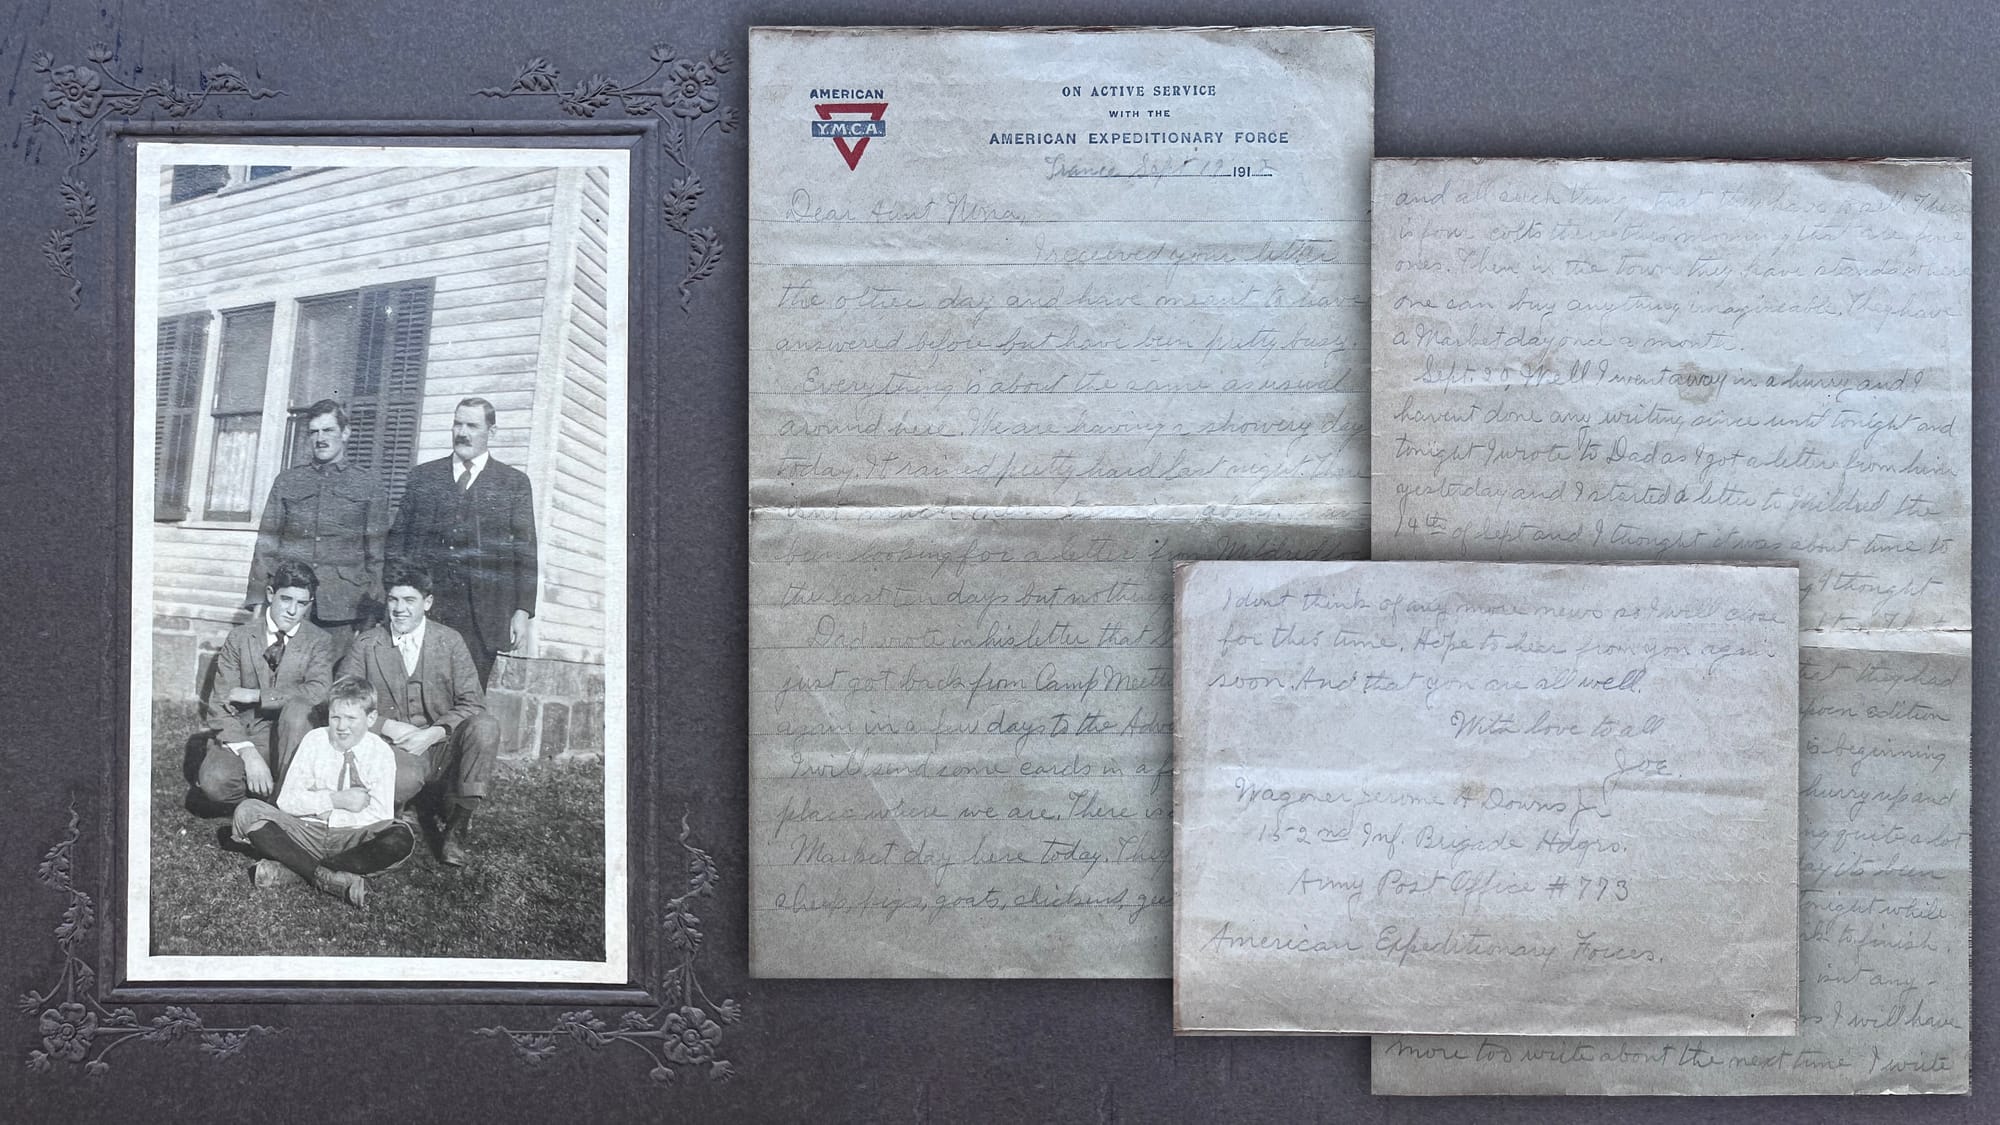 AMERICAN
Y.M.C.A.
ON ACTIVE SERVICE
WITH THE
AMERICAN EXPEDITIONARY FORCE
France Sept 19 1918
Dear Aunt Nina,
I received your letter
the other day and have meant to have
answered before but have been pretty busy.
Everything is about the same as usual
around here. We are having a showery day
today. It rained pretty hard last night. There
isnt much
been looking for a letter from Mildred for
the last ten days but nothing
Dad wrote in his letter that
just got back from Camp Meeti
again in a few days to the Adve
I will send some cards in a f
place where we are. There is
Market day here today. They
sheep, pigs, goats, chickens, gee
and all such things that they have to sell. There
is four colts there this morning that are fine
ones. Then in the town they have stands where
one can buy anything imagineable. They have
a Market day once a month.
Sept. 20, Well I went away in a hurry and I
havent done any writing since until tonight and
tonight I wrote to Dad as I got a letter from him
yesterday and I started a letter to Mildred the
14th of Sept and I thought it was about time to
I thought
that they had
edition
is beginning
hurry up and
ng quite a lot
day its been
tonight while
to finish.
isnt any-
I will have
more too write about the next time I write
I dont think of any more news so I will close
for this time. Hope to hear from you again
soon. And that you are all well.
With love to all
Joe.
Wagoner Jerome A Downs Jr
152nd Inf. Brigade Hdqrs.
Army Post Office #773
American Expeditionary Forces.